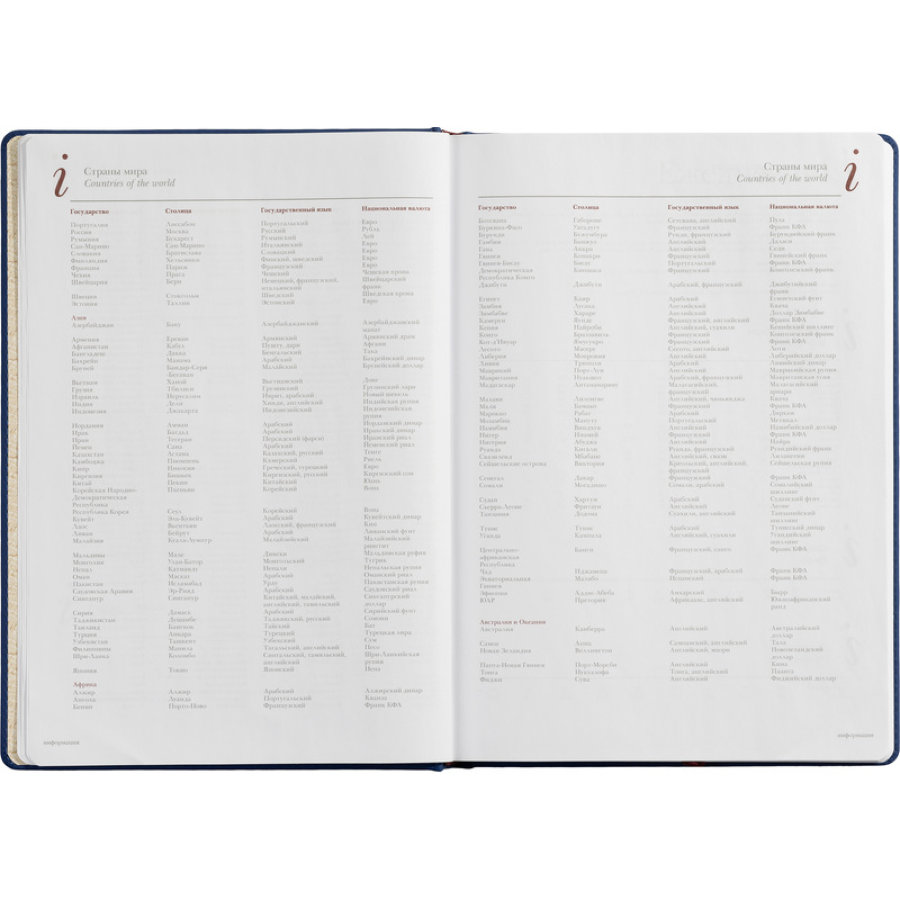 i
Страны мира
Countries of the world
Государство Столица Государственный язык Национальная валюта
Португалия Лиссабон Португальский Евро
Россия Москва Русский Рубль
Румыния Бухарест Румынский Лей
Сан-Марино Сан-Марино Итальянский Евро
Словакия Братислава Словацкий Евро
Финляндия Хельсинки Финский, шведский Евро
Франция Париж Французский Евро
Чехия Прага Чешский Чешская крона
Швейцария Берн Немецкий, французский, Швейцарский
итальянский франк
Швеция Стокгольм Шведский Шведская крона
Эстония Таллин Эстонский Евро
Азия
Азербайджан Баку Азербайджанский Азербайджанский
манат
Армения Ереван Армянский Армянский драм
Афганистан Кабул Пушту, дари Афгани
Бангладеш Дакка Бенгальский Така
Бахрейн Манама Арабский Бахрейнский динар
Бруней Бандар-Сери- Малайский Брунейский доллар
Бегаван
Вьетнам Ханой Вьетнамский Донг
Грузия Тбилиси Грузинский Грузинский лари
Израиль Иерусалим Иврит, арабский Новый шекель
Индия Дели Хинди, английский Индийская рупия
Индонезия Джакарта Индонезийский Индонезийская
рупия
Иордания Амман Арабский Иорданский динар
Ирак Багдад Арабский Иракский динар
Иран Тегеран Персидский (фарси) Иранский риал
Йемен Сана Арабский Йеменский риал
Казахстан Астана Казахский, русский Тенге
Камбоджа Пномпень Кхмерский Риель
Кипр Никосия Греческий, турецкий Евро
Киргизия Бишкек Киргизский, русский Киргизский сом
Китай Пекин Китайский Юань
Корейская Народно- Пхеньян Корейский Вона
Демократическая
Республика
Республика Корея Сеул Корейский Вона
Кувейт Эль-Кувейт Арабский Кувейтский динар
Лаос Вьентьян Лаосский, французский Кип
Ливан Бейрут Арабский Ливанский фунт
Малайзия Куала-Лумпур Малайзийский Малайзийский
ринггит
Мальдивы Мале Дивехи Мальдивская руфия
Монголия Улан-Батор Монгольский Тугрик
Непал Катманду Непали Непальская рупия
Оман Маскат Арабский Оманский риал
Пакистан Исламабад Урду Пакистанская рупия
Саудовская Аравия Эр-Рияд Арабский Саудовский риял
Сингапур Сингапур Китайский, малайский, Сингапурский
английский, тамильский доллар
Сирия Дамаск Арабский Сирийский фунт
Таджикистан Душанбе Таджикский, русский Сомони
Таиланд Бангкок Тайский Бат
Турция Анкара Турецкий Турецкая лира
Узбекистан Ташкент Узбекский Сум
Филиппины Манила Тагальский, английский Песо
Шри-Ланка Коломбо Сингальский, тамильский, Шри-Ланкийская
английский рупия
Япония Токио Японский Иена
Африка
Алжир Алжир Арабский Алжирский динар
Ангола Луанда Португальский Кванза
Бенин Порто-Ново Французский Франк КФА
информация
Страны мира
Countries of the world
i
Государство Столица Государственный язык Национальная валюта
Ботсвана Габороне Сетсвана, английский Пула
Буркина-Фасо Уагадугу Французский Франк КФА
Бурунди Бужумбура Рунди, французский Бурундийский франк
Гамбия Банжул Английский Даласи
Гана Аккра Английский Седи
Гвинея Конакри Французский Гвинейский франк
Гвинея-Бисау Бисау Португальский Франк КФА
Демократическая Киншаса Французский Конголезский франк
Республика Конго
Джибути Джибути Арабский, французский Джибутийский
франк
Египет Каир Арабский Египетский фунт
Замбия Лусака Английский Квача
Зимбабве Хараре Английский Доллар Зимбабве
Камерун Яунде Французский, английский Франк КФА
Кения Найроби Английский, суахили Кенийский шиллинг
Конго Браззавиль Французский Конголезский франк
Кот-д'Ивуар Ямусукро Французский Франк КФА
Лесото Масеру Сесото, английский Лоти
Либерия Монровия Английский Либерийский доллар
Ливия Триполи Арабский Ливийский динар
Маврикий Порт-Луи Английский Маврикийская рупия
Мавритания Нуакшот Арабский, французский Мавританская угия
Мадагаскар Антананариву Малагасийский, Малагасийский
французский ариари
Малави Лилонгве Английский, чиньянджа Квача
Мали Бамако Французский Франк КФА
Марокко Рабат Арабский Дирхам
Мозамбик Мапуту Португальский Метикал
Намибия Виндхук Английский Намибийский доллар
Нигер Ниамей Французский Франк КФА
Нигерия Абуджа Английский Найра
Руанда Кигали Руанда, французский Руандийский франк
Свазиленд Мбабане Английский, свази Лилангени
Сейшельские острова Виктория Креольский, английский, Сейшельская рупия
французский
Сенегал Дакар Французский Франк КФА
Сомали Могадишо Сомали, арабский Сомалийский
шиллинг
Судан Хартум Арабский Суданский фунт
Сьерра-Леоне Фритаун Английский Леоне
Танзания Додома Суахили, английский Танзанийский
шиллинг
Тунис Тунис Арабский Тунисский динар
Уганда Кампала Английский, суахили Угандийский
шиллинг
Центрально- Банги Французский, санго Франк КФА
африканская
Республика
Чад Нджамена Французский, арабский Франк КФА
Экваториальная Малабо Испанский Франк КФА
Гвинея
Эфиопия Аддис-Абеба Амхарский Бырр
ЮАР Претория Африкаанс, английский Южноафриканский
рэнд
Австралия и Океания
Австралия Канберра Английский Австралийский
доллар
Самоа Апиа Самоанский, английский Тала
Новая Зеландия Веллингтон Английский, маори Новозеландский
доллар
Папуа-Новая Гвинея Порт-Морсби Английский Кина
Тонга Нукуалофа Тонга, английский Паанга
Фиджи Сува Английский Фиджийский доллар
информация